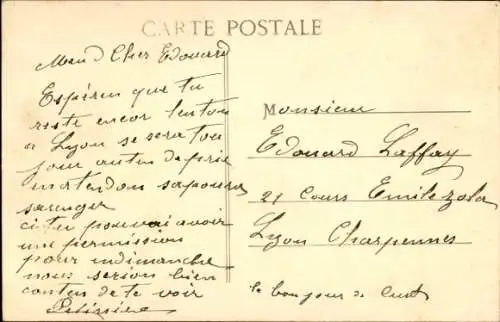 CARTE POSTALE
Mon Cher Edouard
Espéren que tu
reste encor lenton
a Lyon se sera tou
jour auten de pris
en atendon sa poura
saranger
ci tu pouvai avoir
une permission
pour indimanche
nous serion bien
conten de te voir
Monsieur
Edouard Laffay
21 Cours Emile zola
Lyon Charpennes
le bonjour de